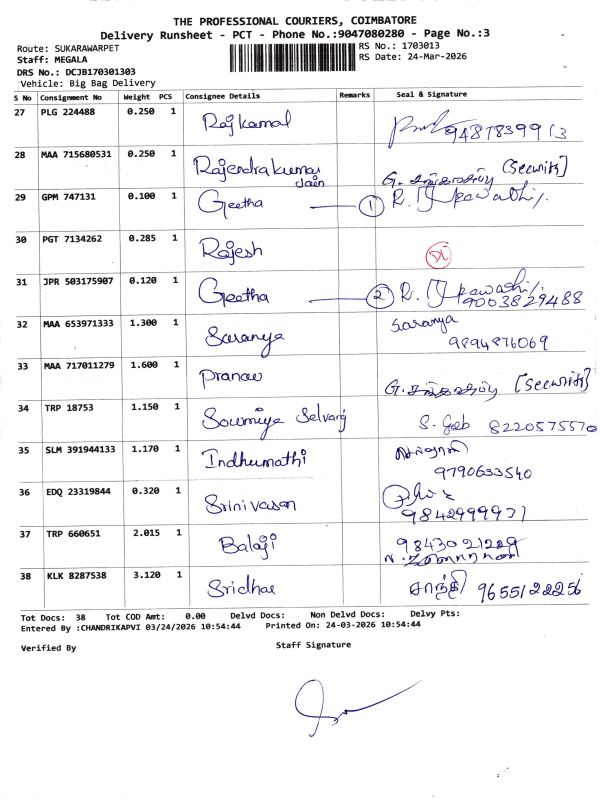 THE PROFESSIONAL COURIERS, COIMBATORE
Delivery Runsheet - PCT - Phone No.:9047080280 - Page No.:3
Route: SUKARAWARPET
RS No.: 1703013
Staff: MEGALA
RS Date: 24-Mar-2026
DRS No.: DCJB170301303
Vehicle: Big Bag Delivery
S No Consignment No Weight PCS Consignee Details Remarks Seal & Signature
27 PLG 224488 0.250 1 Rajkamal 9487839913
28 MAA 715680531 0.250 1 Rajendrakumar Jain G. (Security)
29 GPM 747131 0.100 1 Geetha 1 R.
30 PGT 7134262 0.285 1 Rajesh
31 JPR 503175907 0.120 1 Geetha 2 R. 9003829488
32 MAA 653971333 1.300 1 Saranya Saranya 9894876069
33 MAA 717011279 1.600 1 Pranav G. (Security)
34 TRP 18753 1.150 1 Soumiya Selvaraj S. 8220575570
35 SLM 391944133 1.170 1 Indhumathi 9790633540
36 EDQ 23319844 0.320 1 Srinivasan 9842999931
37 TRP 660651 2.015 1 Balaji 9843021229
38 KLK 8287538 3.120 1 Sridhar சாந்தி 9655122256
Tot Docs: 38 Tot COD Amt: 0.00 Delvd Docs: Non Delvd Docs: Delvy Pts:
Entered By :CHANDRIKAPVI 03/24/2026 10:54:44 Printed On: 24-03-2026 10:54:44
Verified By Staff Signature